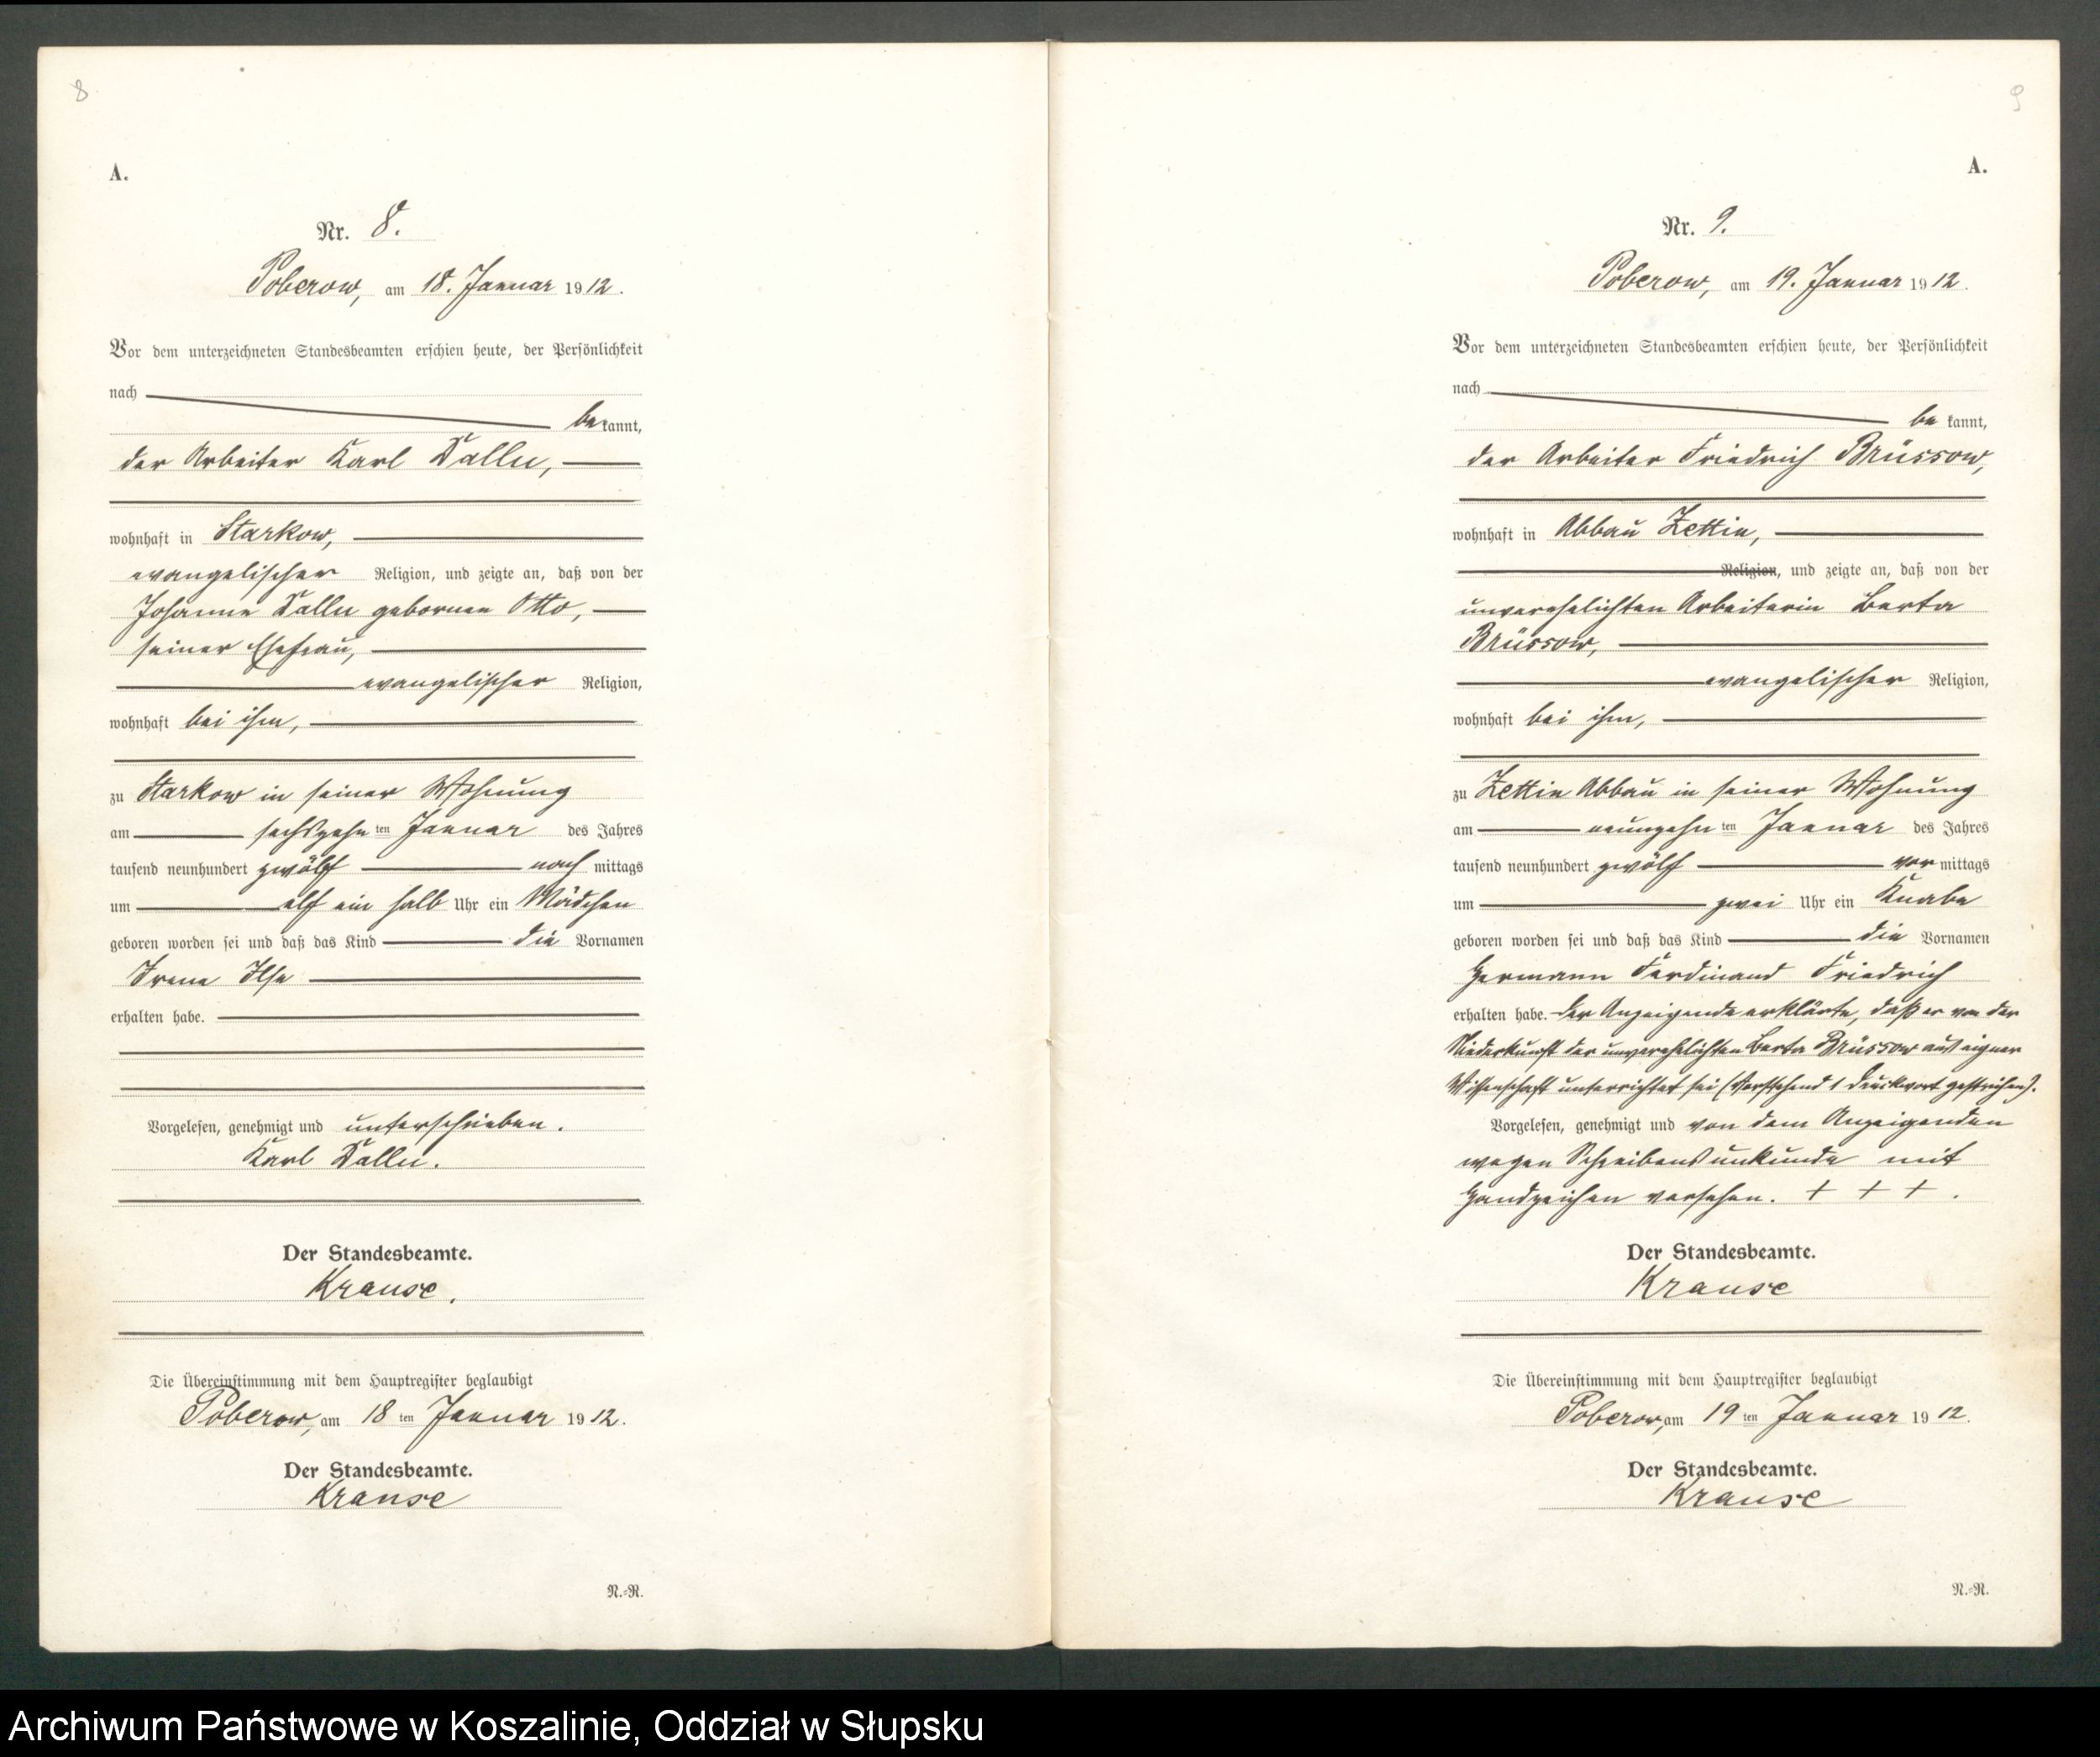 8
A.
Nr. 8.
Poberow, am 18. Januar 1912.
Vor dem unterzeichneten Standesbeamten erschien heute, der Persönlichkeit
nach
bekannt,
der Arbeiter Karl
wohnhaft in Starkow,
evangelischer Religion, und zeigte an, daß von der
Johanne geborenen Otto,
seiner Ehefrau,
evangelischer Religion,
wohnhaft bei ihm,
zu Starkow in seiner Wohnung
am sechszehnten Januar des Jahres
tausend neunhundert zwölf nachmittags
um elf ein halb Uhr ein Mädchen
geboren worden sei und daß das Kind die Vornamen
Irene Ilse
erhalten habe.
Vorgelesen, genehmigt und unterschrieben.
Karl
Der Standesbeamte.
Krause.
Die Übereinstimmung mit dem Hauptregister beglaubigt
Poberow, am 18ten Januar 1912.
Der Standesbeamte.
Krause
N.-R.
9
A.
Nr. 9.
Poberow, am 19. Januar 1912.
Vor dem unterzeichneten Standesbeamten erschien heute, der Persönlichkeit
nach
bekannt,
der Arbeiter Friedrich Brüssow,
wohnhaft in Abbau Zettin,
Religion, und zeigte an, daß von der
unverehelichten Arbeiterin Berta
Brüssow,
evangelischer Religion,
wohnhaft bei ihm,
zu Zettin Abbau in seiner Wohnung
am neunzehnten Januar des Jahres
tausend neunhundert zwölf vormittags
um zwei Uhr ein Knabe
geboren worden sei und daß das Kind die Vornamen
Hermann Ferdinand Friedrich
erhalten habe. Der Anzeigende erklärte, daß er von der
Niederkunft der unverehelichten Berta Brüssow aus eigner
Wissenschaft unterrichtet sei (Vorstehend 1 Druckwort gestrichen).
Vorgelesen, genehmigt und von dem Anzeigenden
wegen Schreibensunkunde mit
Handzeichen versehen. + + + .
Der Standesbeamte.
Krause
Die Übereinstimmung mit dem Hauptregister beglaubigt
Poberow, am 19ten Januar 1912.
Der Standesbeamte.
Krause
N.-R.
Archiwum Państwowe w Koszalinie, Oddział w Słupsku